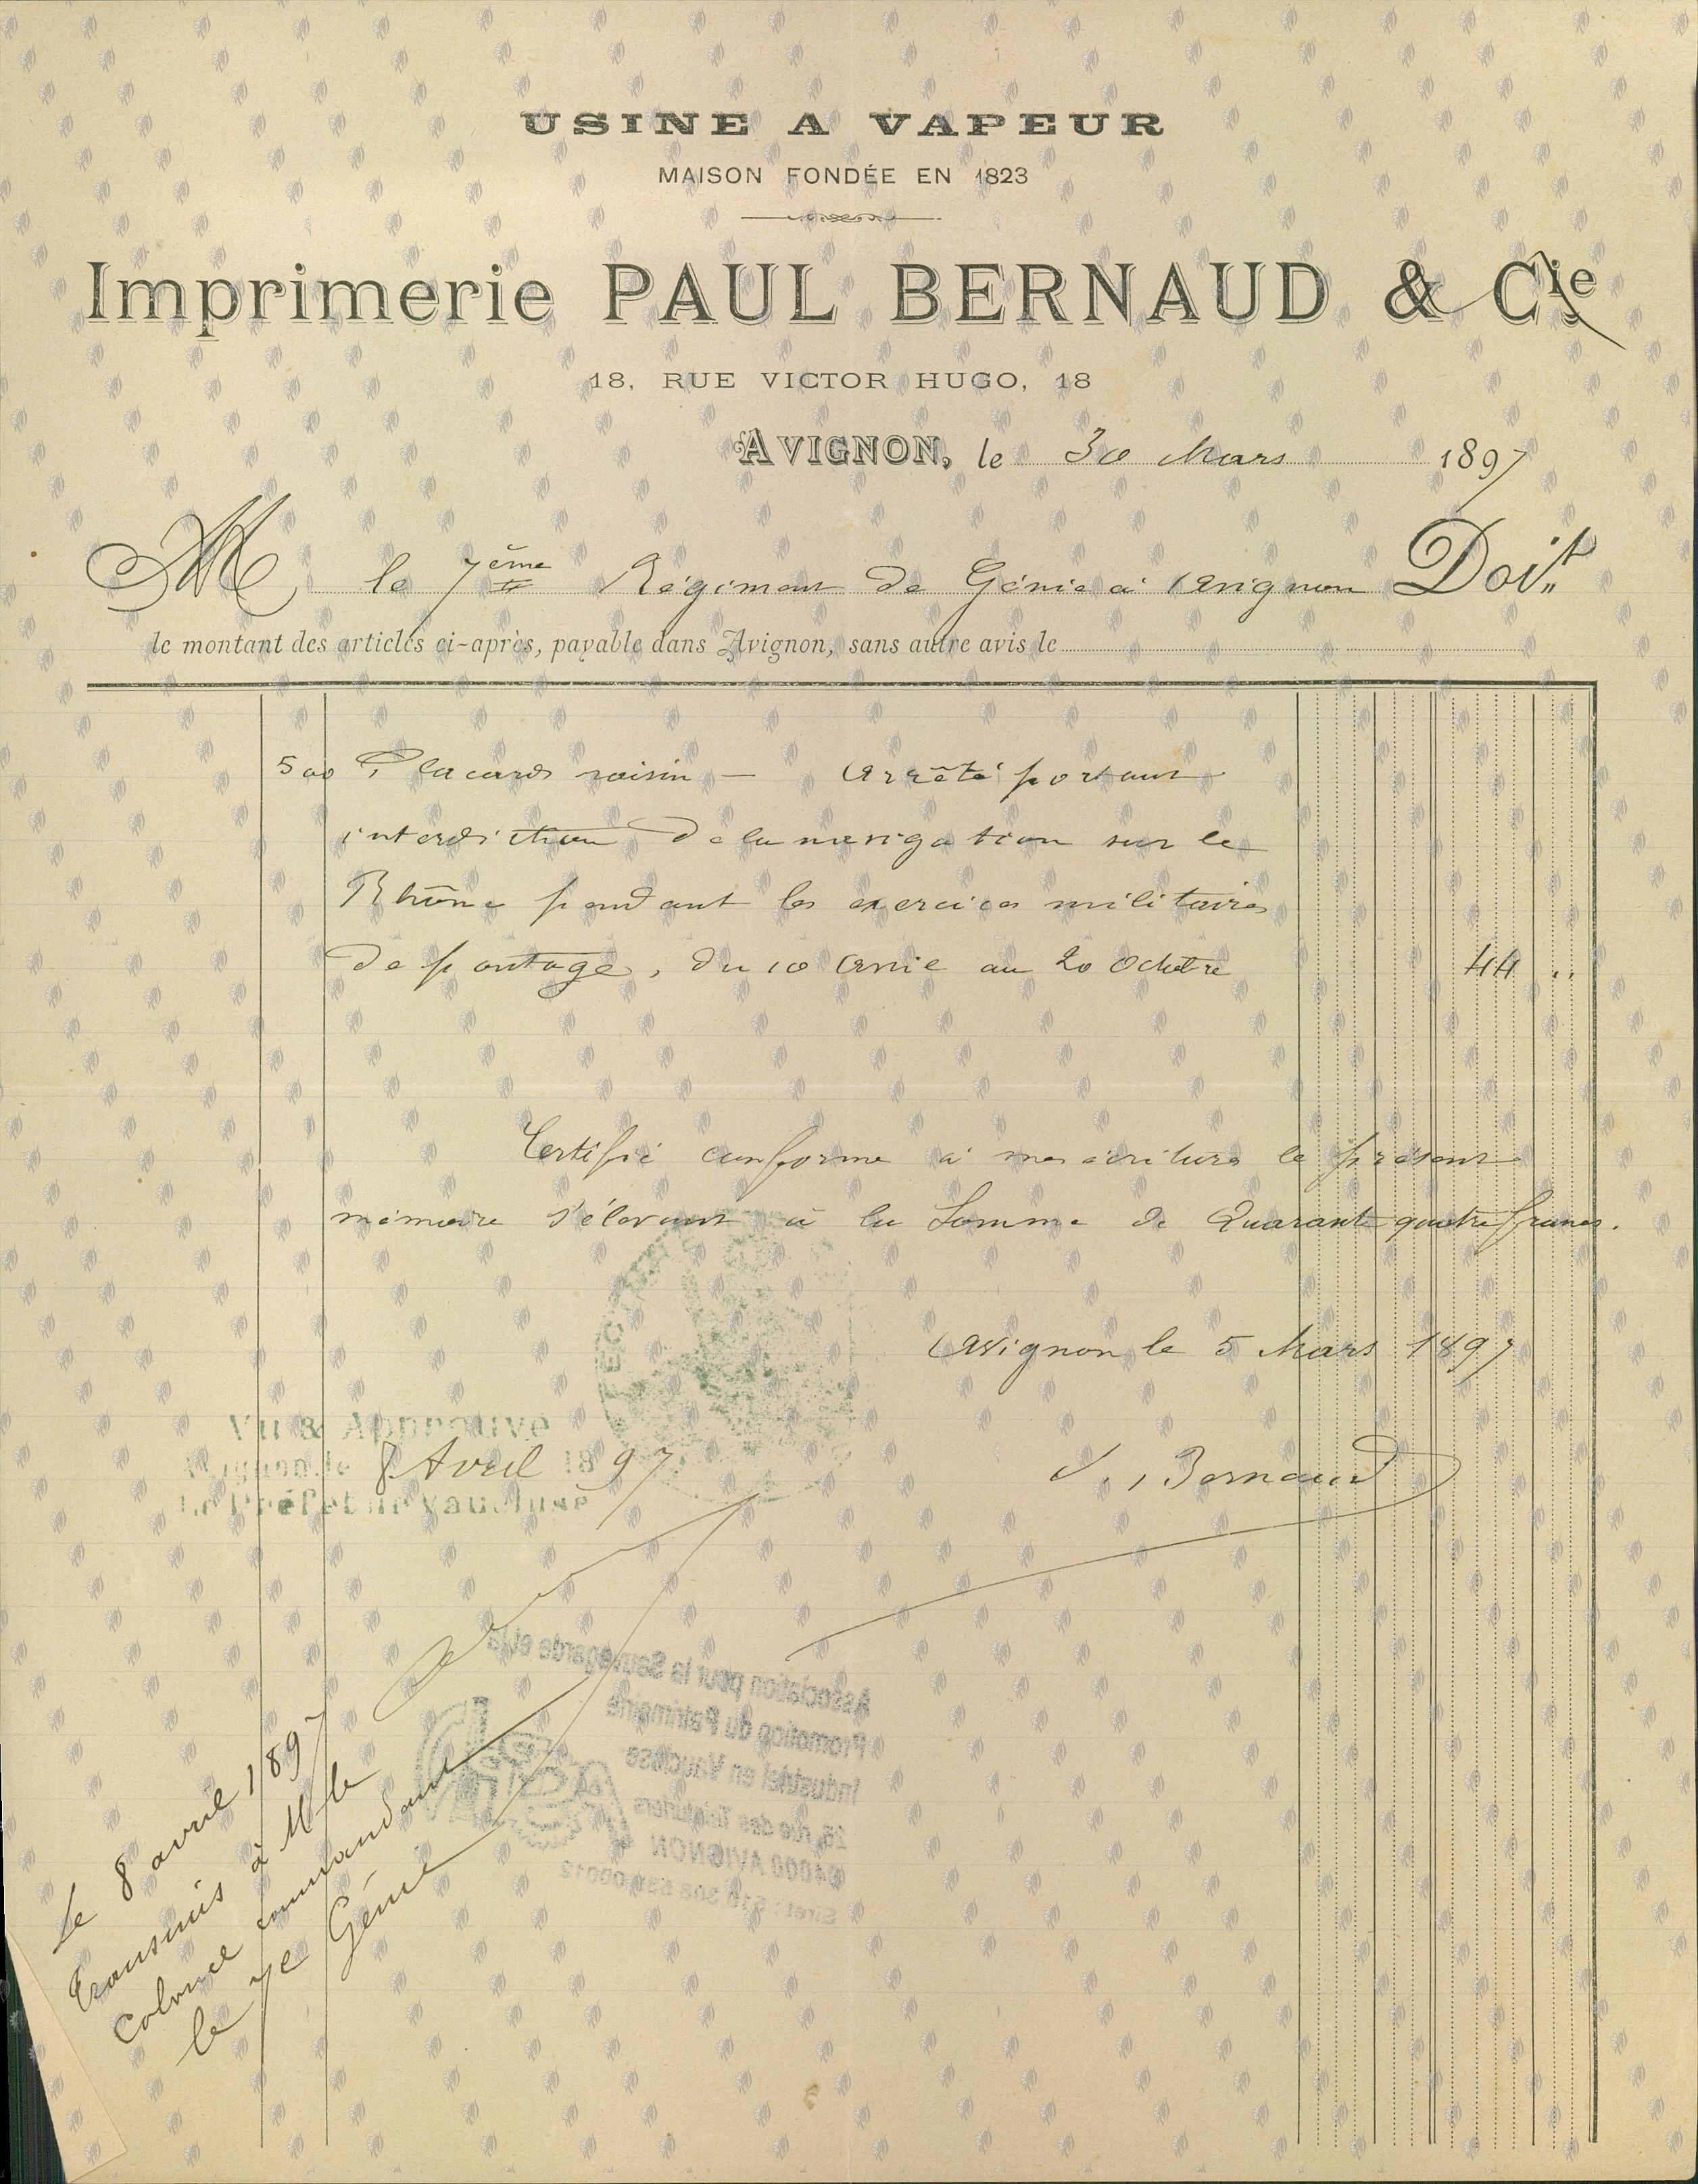 USINE A VAPEUR
MAISON FONDÉE EN 1823
Imprimerie PAUL BERNAUD & Cie
18, RUE VICTOR HUGO, 18
AVIGNON, le 30 Mars 1897
M le 7ème Régiment de Génie à Avignon Doit
le montant des articles ci-après, payable dans Avignon, sans autre avis le
500 Placards raisin — Arrêté portant
interdiction de la navigation sur le
Rhône pendant les exercices militaires
de pontage, du 10 Avril au 20 Octobre 44 "
Certifié conforme à mes écritures le présent
mémoire s'élevant à la Somme de Quarante quatre francs.
Avignon le 5 Mars 1897
Bernaud
Vu & Approuvé
Avignon, le 8 Avril 1897
Le Préfet de Vaucluse
Le 8 avril 1897
transmis à M le
Colonel commandant
le 7e Génie
Association pour la Sauvegarde et la
Promotion du Patrimoine
Industriel en Vaucluse
rue des Teinturiers
84000 AVIGNON